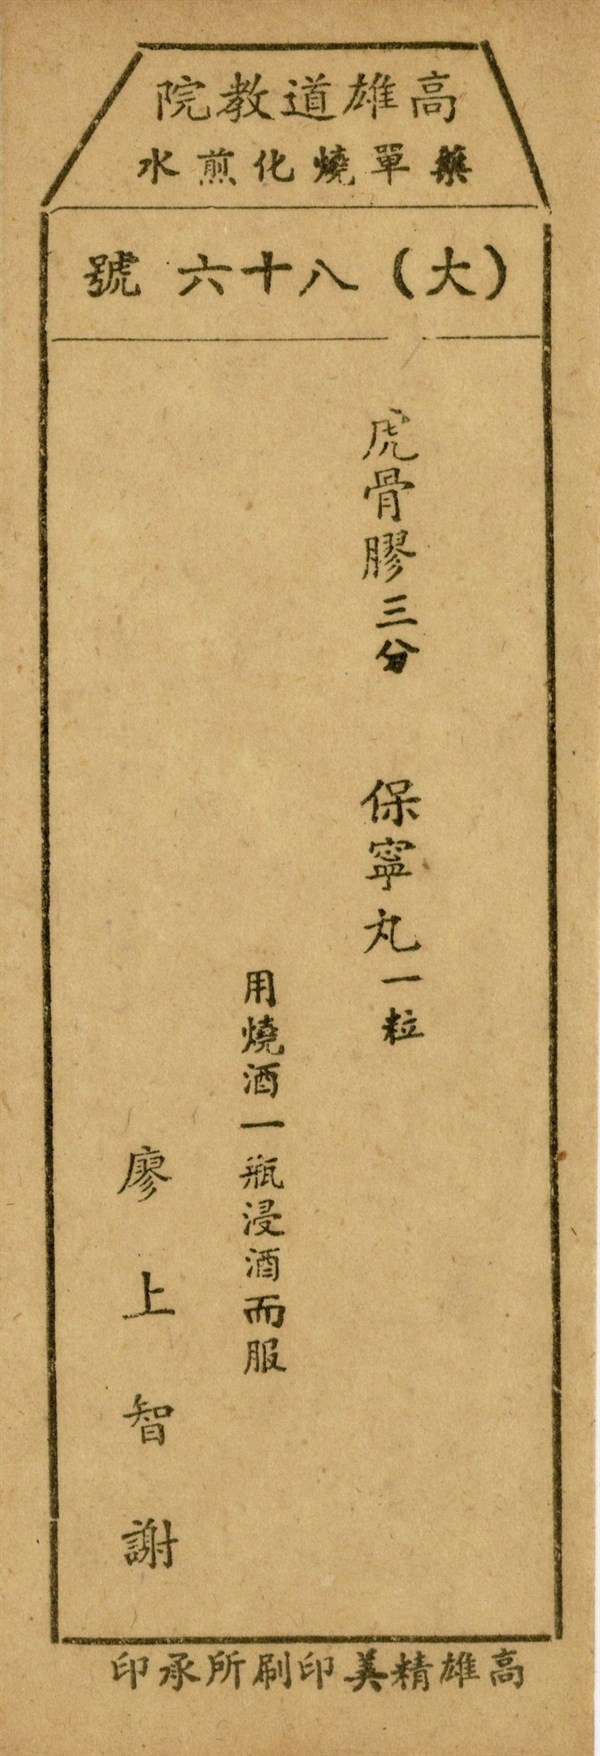 高雄道教院
藥單燒化煎水
（大）八十六號
虎骨膠三分　保寧丸一粒
用燒酒一瓶浸酒而服
廖上智謝
高雄精美印刷所承印